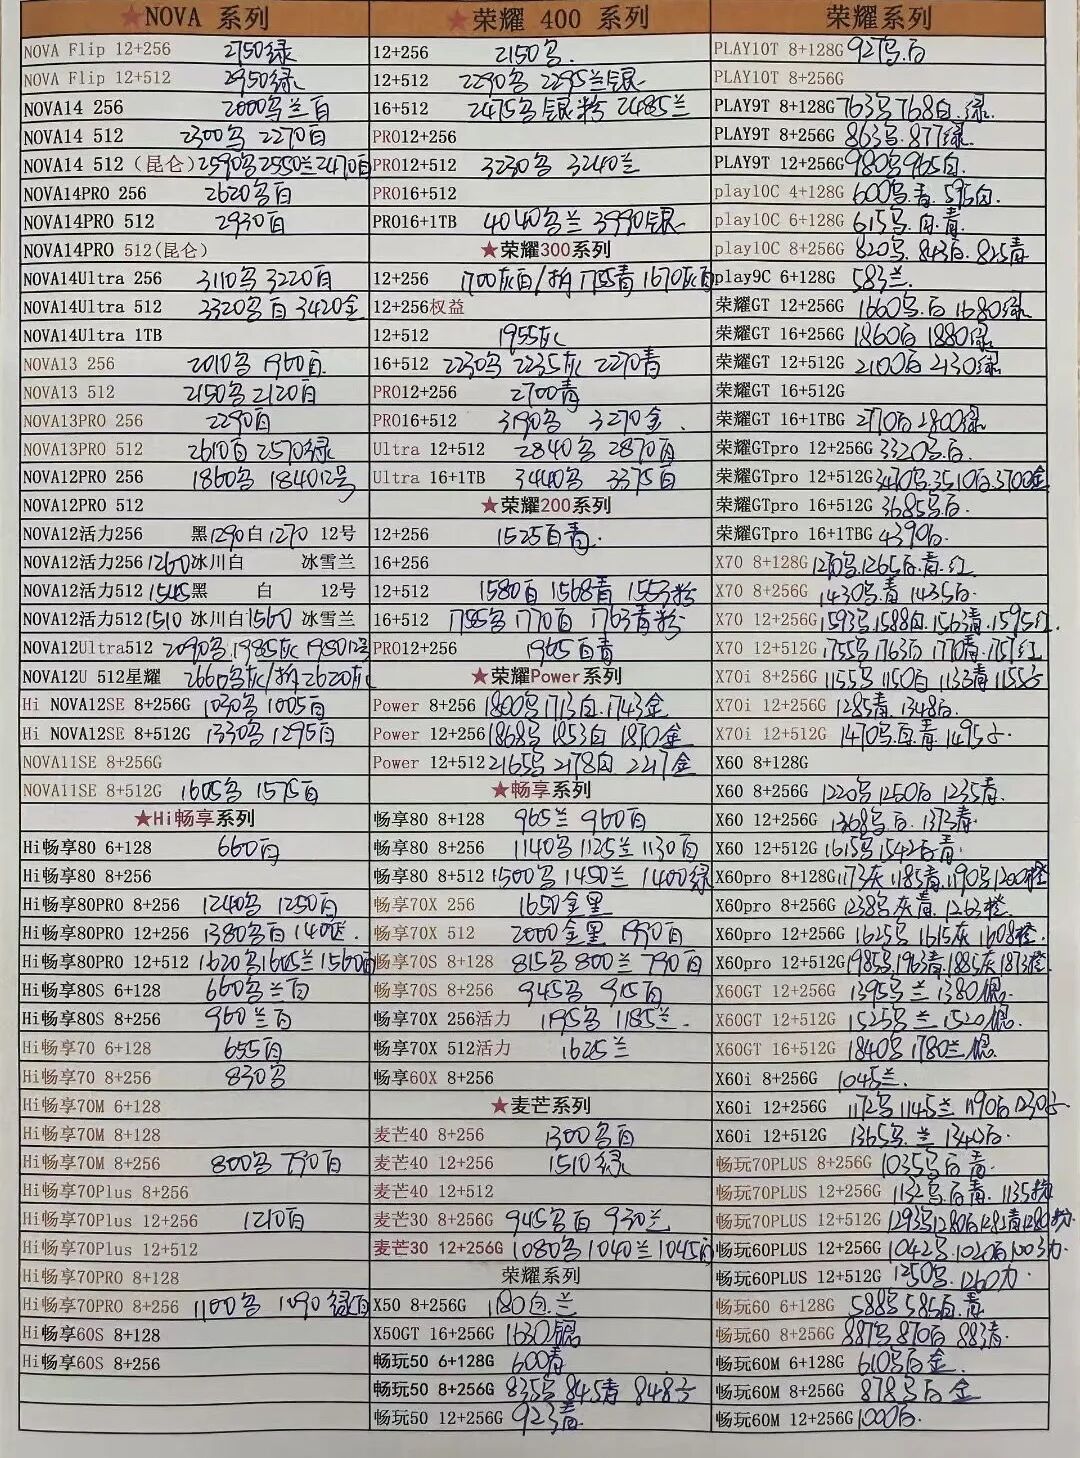 ★NOVA 系列
NOVA Flip 12+256 2750绿
NOVA Flip 12+512 2950绿
NOVA14 256 2000乌兰百
NOVA14 512 2300乌 2270百
NOVA14 512（昆仑）2590乌2550兰2470百
NOVA14PRO 256 2620乌百
NOVA14PRO 512 2930百
NOVA14PRO 512(昆仑)
NOVA14Ultra 256 3110乌 3220百
NOVA14Ultra 512 3320乌百 3420金
NOVA14Ultra 1TB
NOVA13 256 2010乌 1960百
NOVA13 512 2150乌 2120百
NOVA13PRO 256 2290百
NOVA13PRO 512 2610百 2570绿
NOVA12PRO 256 1860乌 1840 12号
NOVA12PRO 512
NOVA12活力256 黑1290白1270 12号
NOVA12活力256 1260冰川白 冰雪兰
NOVA12活力512 1545黑 白 12号
NOVA12活力512 1510冰川白1560 冰雪兰
NOVA12Ultra512 2090乌.1985灰 1950 12号
NOVA12U 512星耀 2660乌灰/ 2620灰
Hi NOVA12SE 8+256G 1030乌 1005百
Hi NOVA12SE 8+512G 1330乌 1295百
NOVA11SE 8+256G
NOVA11SE 8+512G 1605乌 1575百
★Hi畅享系列
Hi畅享80 6+128 660百
Hi畅享80 8+256
Hi畅享80PRO 8+256 1240乌 1250百
Hi畅享80PRO 12+256 1380乌百 1400
Hi畅享80PRO 12+512 1620乌.1605兰1560百
Hi畅享80S 6+128 660乌兰百
Hi畅享80S 8+256 960兰百
Hi畅享70 6+128 655百
Hi畅享70 8+256 830乌
Hi畅享70M 6+128
Hi畅享70M 8+128
Hi畅享70M 8+256 800乌 790百
Hi畅享70Plus 8+256
Hi畅享70Plus 12+256 1210百
Hi畅享70Plus 12+512
Hi畅享70PRO 8+128
Hi畅享70PRO 8+256 1100乌 1090绿百
Hi畅享60S 8+128
Hi畅享60S 8+256
★荣耀 400 系列
12+256 2150乌.
12+512 2290乌 2295兰银
16+512 2475乌银粉 2485兰
PRO12+256
PRO12+512 3230乌 3240兰
PRO16+512
PRO16+1TB 4040乌兰 3990银
★荣耀300系列
12+256 1700灰百/ 1755青 1670灰百
12+256权益
12+512 1955灰
16+512 2230乌 2235灰 2270青
PRO12+256 2700青
PRO16+512 3190乌 3270金.
Ultra 12+512 2840乌 2870百
Ultra 16+1TB 3440乌 3375百
★荣耀200系列
12+256 1525百青.
16+256
12+512 1580百 1568青 1553粉
16+512 1785乌 1770百 1763青粉
PRO12+256 1965百青
★荣耀Power系列
Power 8+256 1800乌1713白.1743金
Power 12+256 1868乌 1853白 1850金
Power 12+512 2165乌 2178白 2217金
★畅享系列
畅享80 8+128 965兰 960百
畅享80 8+256 1140乌 1125兰 1130百
畅享80 8+512 1500乌 1450兰 1400绿
畅享70X 256 1650金黑
畅享70X 512 2000金黑 1990百
畅享70S 8+128 815乌 800兰 790百
畅享70S 8+256 945乌 915百
畅享70X 256活力 1195乌 1185兰.
畅享70X 512活力 1625兰
畅享60X 8+256
★麦芒系列
麦芒40 8+256 1300乌百
麦芒40 12+256 1510绿
麦芒40 12+512
麦芒30 8+256G 945乌百 930兰
麦芒30 12+256G 1080乌 1040兰 1045百
荣耀系列
X50 8+256G 1180白.兰
X50GT 16+256G 1630银
畅玩50 6+128G 600青
畅玩50 8+256G 835乌 845青 848
畅玩50 12+256G 923青
荣耀系列
PLAY10T 8+128G 927乌.白
PLAY10T 8+256G
PLAY9T 8+128G 763乌 768白.绿.
PLAY9T 8+256G 863乌.877绿.
PLAY9T 12+256G 980乌965白.
play10C 4+128G 600乌.青.595白.
play10C 6+128G 615乌.白.青.
play10C 8+256G 820乌.843白.825青
play9C 6+128G 583兰.
荣耀GT 12+256G 1660乌.白 1680绿
荣耀GT 16+256G 1860白 1880绿
荣耀GT 12+512G 2100白 2130绿
荣耀GT 16+512G
荣耀GT 16+1TBG 2770白 2800绿
荣耀GTpro 12+256G 3320乌.白.
荣耀GTpro 12+512G 3470乌.3510白.3700金
荣耀GTpro 16+512G 3685乌白.
荣耀GTpro 16+1TBG 4390白.
X70 8+128G 1270乌.1265白.青.红
X70 8+256G 1430乌.青 1435白.
X70 12+256G 1593乌.1588白.1563青.1595红.
X70 12+512G 1755乌 1763白 1770青.1757红
X70i 8+256G 1155乌 1150白 1133青 1155
X70i 12+256G 1285青.1348白.
X70i 12+512G 1470乌.白.青 1495
X60 8+128G
X60 8+256G 1220乌 1250白 1235青.
X60 12+256G 1368乌.白. 1373青.
X60 12+512G 1615乌 1542白青.
X60pro 8+128G 1173灰 1185青.1190乌 1200橙
X60pro 8+256G 1238乌灰青.1263橙.
X60pro 12+256G 1625乌 1615灰 1608橙.
X60pro 12+512G 1985乌.1963青.1885灰1873橙
X60GT 12+256G 1395乌 兰 1380银.
X60GT 12+512G 1525乌 兰 1520银.
X60GT 16+512G 1840乌 1780兰 银.
X60i 8+256G 1045兰.
X60i 12+256G 1172乌 1145兰 1190白 1230
X60i 12+512G 1365乌.兰 1340白.
畅玩70PLUS 8+256G 1035乌白 青.
畅玩70PLUS 12+256G 1132乌.白青. 1135
畅玩70PLUS 12+512G 1293乌1280白1282青1280
畅玩60PLUS 12+256G 1042乌.1020白1003
畅玩60PLUS 12+512G 1250乌.1260
畅玩60 6+128G 588乌 585白.青.
畅玩60 8+256G 887乌 870白 883青.
畅玩60M 6+128G 610乌白金.
畅玩60M 8+256G 878乌白金
畅玩60M 12+256G 1000白.